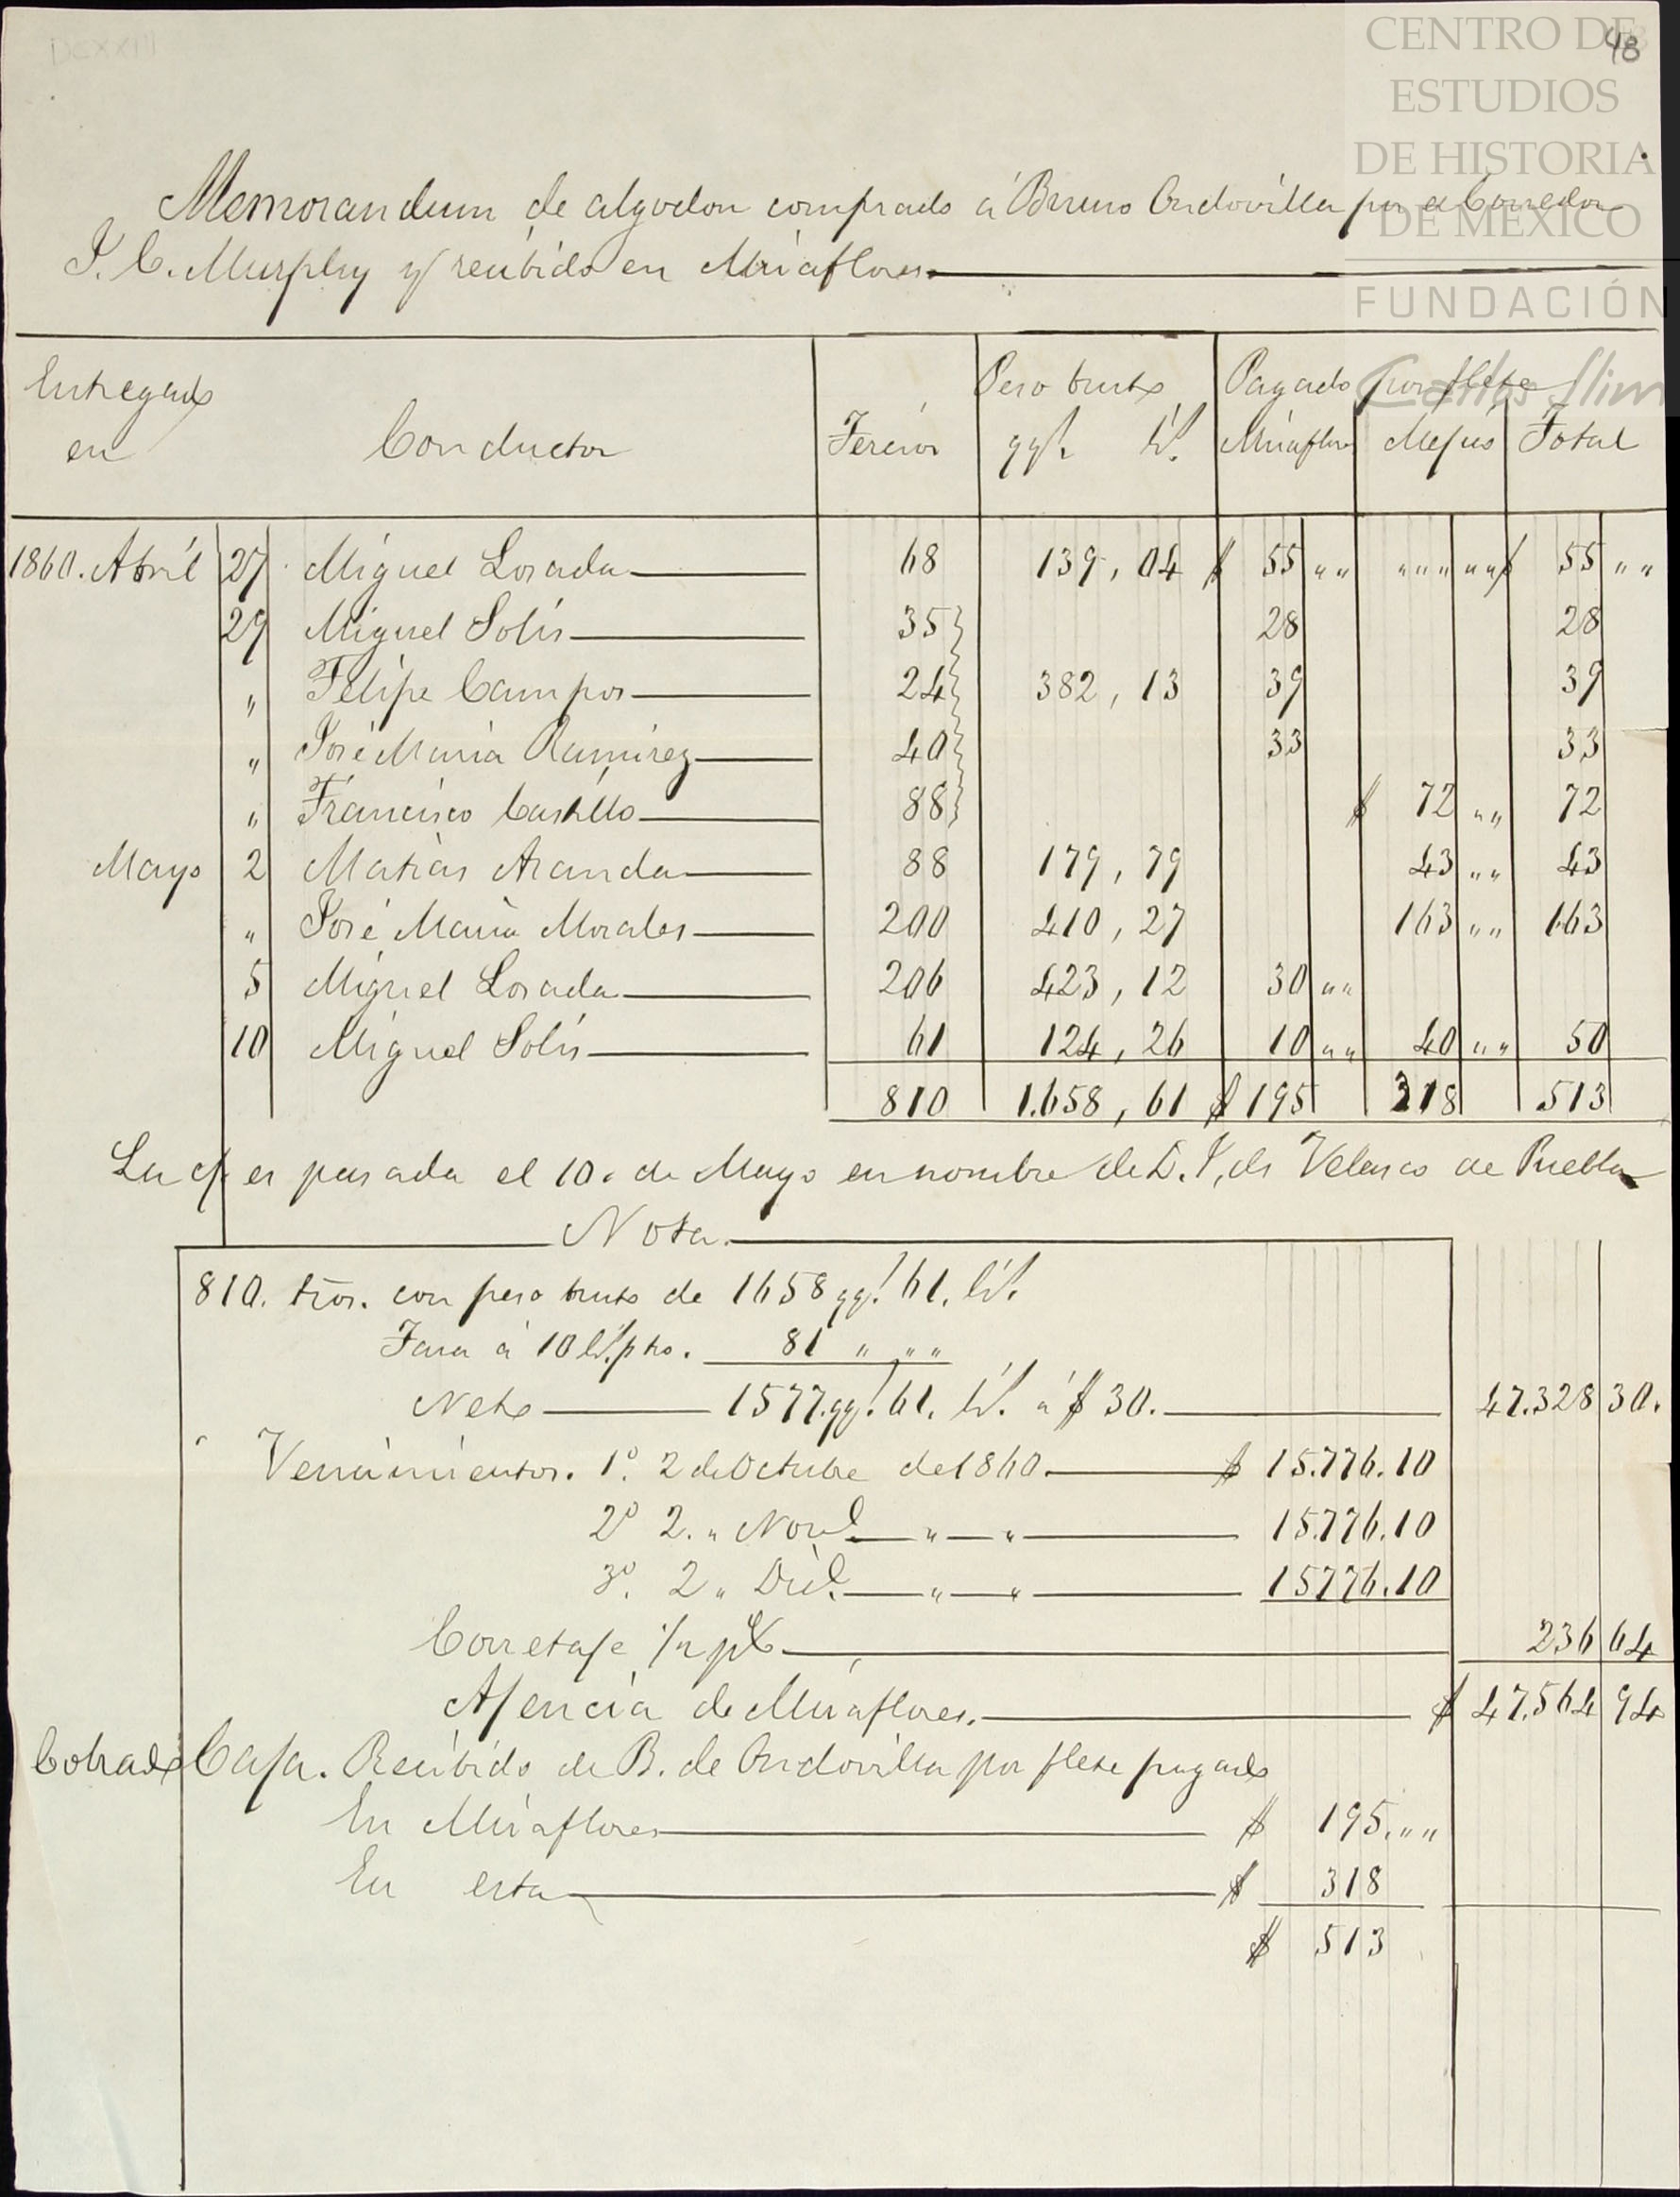 DCXXIII
48
CENTRO DE
ESTUDIOS
DE HISTORIA
DE MÉXICO
FUNDACIÓN
Carlos Slim
Memorandum de algodon comprado á Bruno Ordovilla por el Corredor
J. C. Murphy y recibido en Miraflores.
Entregado en Conductor Tercios Peso bruto qqs. lbs. Pagado por flete Miraflores Mejico Total
1860. Abril 27 Miguel Losada 68 139, 04 $ 55 „ „ „ „ „ „ „ $ 55 „ „
29 Miguel Solis 35} 28 28
„ Felipe Campos 24} 382, 13 39 39
„ José Maria Ramirez 40} 33 33
„ Francisco Castillo 88} $ 72 „ „ 72
Mayo 2 Matias Aranda 88 179, 79 43 „ „ 43
„ José Maria Morales 200 410, 27 163 „ „ 163
5 Miguel Losada 206 423, 12 30 „ „
10 Miguel Solis 61 124, 26 10 „ „ 40 „ „ 50
810 1.658, 61 $ 195 318 513
La c/ es pasada el 10. de Mayo en nombre de D. J. de Velasco de Puebla
Nota.
810. tros. con peso bruto de 1658 qqs. 61. lbs.
Tara á 10 lbs. pto. 81 „ „ „
Neto 1577. qqs. 61. lbs. á $ 30. 47.328 30.
Vencimientos. 1º. 2 de Octubre de 1860. $ 15.776.10
2º 2. „ Nove. „ „ 15.776.10
3º. 2 „ Dice. „ „ 15776.10
Corretaje 1/2 p% 236 64
Ajencia de Miraflores. $ 47.564 94
Cobrado Caja. Recibido de B. de Ordovilla por flete pagado
En Miraflores $ 195. „ „
En esta $ 318
$ 513